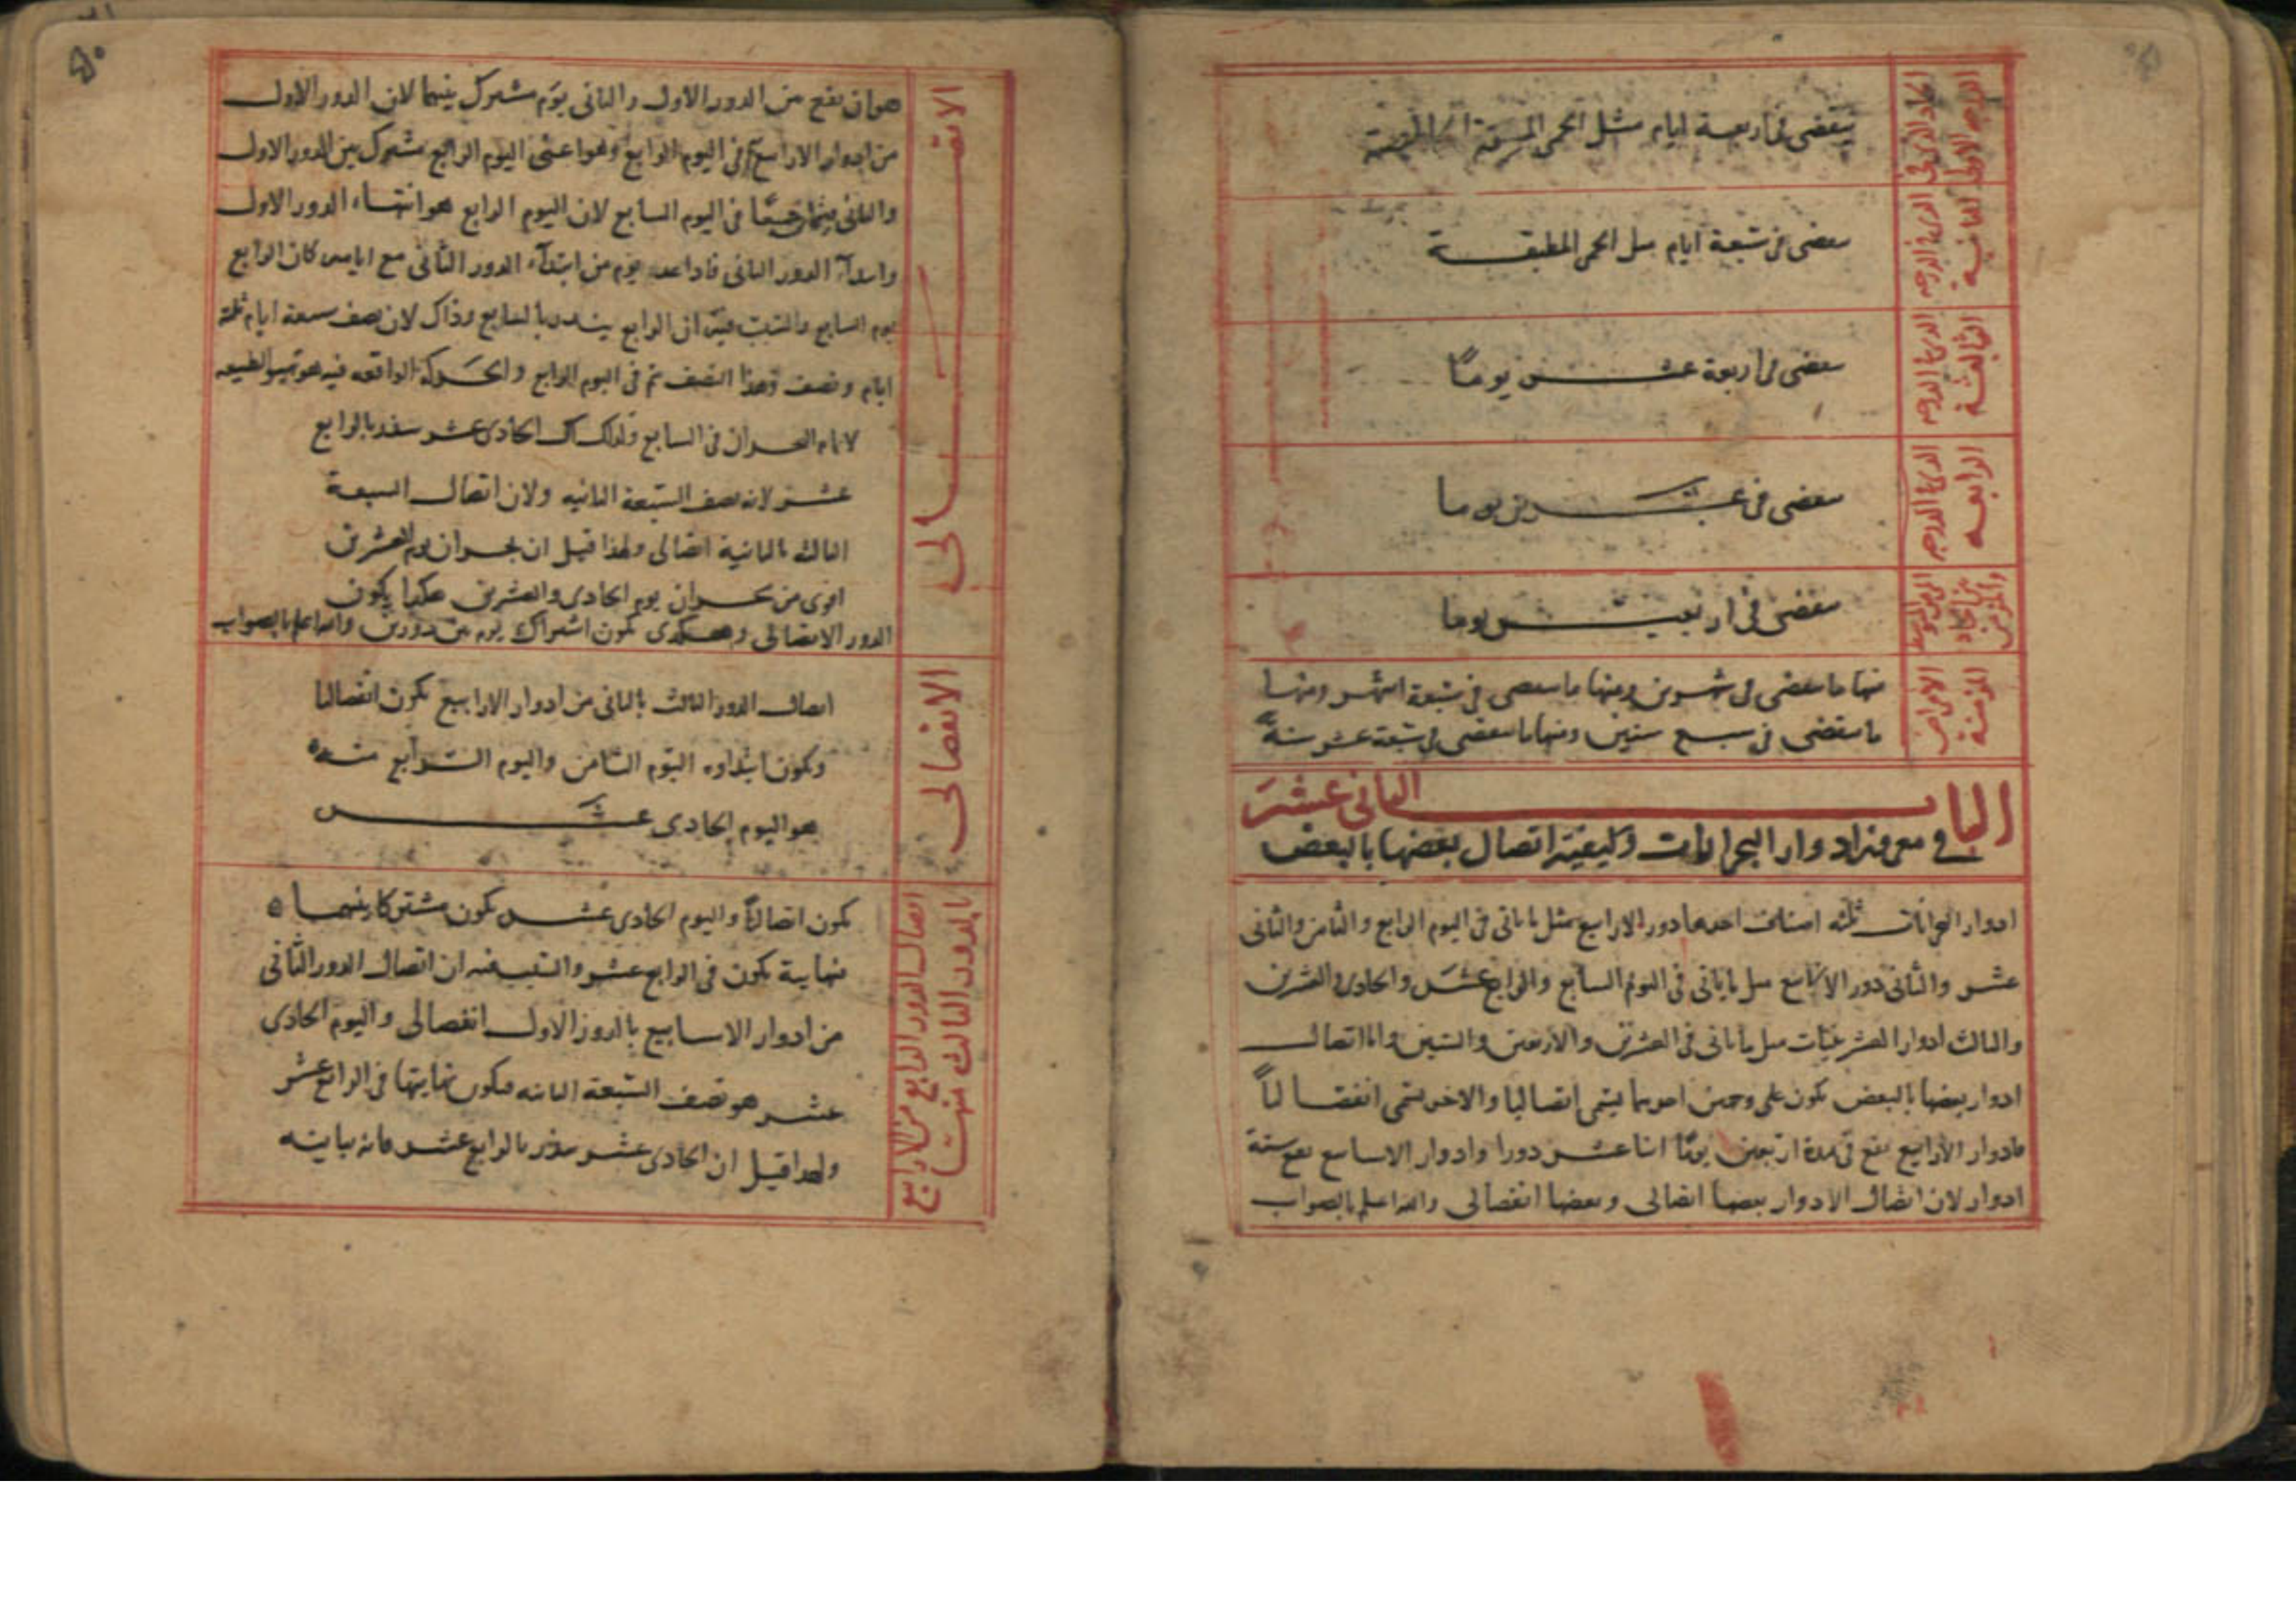 الحاد الذي في الدرجة الاولى
ينقضي في اربعة ايام مثل الحمى المحرقة
الذي في الدرجه الثانية
ينقضي في سبعة ايام مثل الحمى المطبقة
الذي في الدرجه الثالثة
ينقضي في اربعة عشر يوماً
الذي في الدرجه الرابعه
ينقضي في عشرين يوما
ينقضي في اربعين يوما
الامراض المزمنة
منها ما ينقضي في شهرين ومنها ما ينقضي في سبعة اشهر ومنها
ما ينقضي في سبع سنين ومنها ما ينقضي في سبعة عشر سنة
الباب الثاني عشر
في معرفة ادوار البحرانات وكيفية اتصال بعضها بالبعض
ادوار البحرانات ثلثه اصناف احدها دور الارابيع مثل ما ياتي في اليوم الرابع والثامن والثاني
عشر والثاني دور الاسابيع مثل ما ياتي في اليوم السابع والرابع عشر والحادي والعشرين
والثالث ادوار العشرينيات مثل ما ياتي في العشرين والاربعين والستين واما اتصال
ادوار بعضها بالبعض يكون على وجهين احدهما يسمى اتصاليا والاخر يسمى انفصالياً
فادوار الارابيع تقع في مدة اربعين يوما اثنا عشر دورا وادوار الاسابيع تقع ستة
ادوار لان اتصال الادوار بعضها اتصالي وبعضها انفصالي والله اعلم بالصواب
٥٠
الاتصالى
هو ان يقع من الدور الاول والثاني يوم مشترك بينهما لان الدور الاول
من ادوار الارابيع في اليوم الرابع وهو اعنى اليوم الرابع مشترك بين الدور الاول
والثاني في اليوم السابع لان اليوم الرابع هو انتهاء الدور الاول
وابتداء الدور الثاني فاذا عد يوم من ابتداء الدور الثاني مع كان الرابع
يوم السابع والسبب فيه ان الرابع ينذر بالسابع وذاك لان نصف سبعة ايام ثلثة
ايام ونصف وهذا النصف تم في اليوم الرابع والحركة الواقعه فيه
البحران في السابع وكذلك الحادي عشر ينذر بالرابع
عشر لانه نصف السبعة الثانيه ولان اتصال السبعة
الثالثه بالثانية اتصالى ولهذا قيل ان بحران يوم العشرين
اقوى من بحران يوم الحادي والعشرين هكذا يكون
الدور الاتصالى وهكذى يكون اشتراك يوم من دورين والله اعلم بالصواب
الانفصالى
اتصال الدور الثالث بالثاني من ادوار الارابيع يكون انفصاليا
ويكون ابتداوه اليوم الثامن واليوم الرابع منه
هو اليوم الحادي عشر
اتصال الدور الرابع من الارابيع بالدور الثالث منه
يكون اتصالياً واليوم الحادي عشر يكون مشتركا بينهما ه
نهايته يكون في الرابع عشر والسبب فيه ان اتصال الدور الثاني
من ادوار الاسابيع بالدور الاول انفصالى واليوم الحادي
عشر هو نصف السبعة الثانيه فيكون نهايتها في الرابع عشر
ولهذا قيل ان الحادي عشر ينذر بالرابع عشر